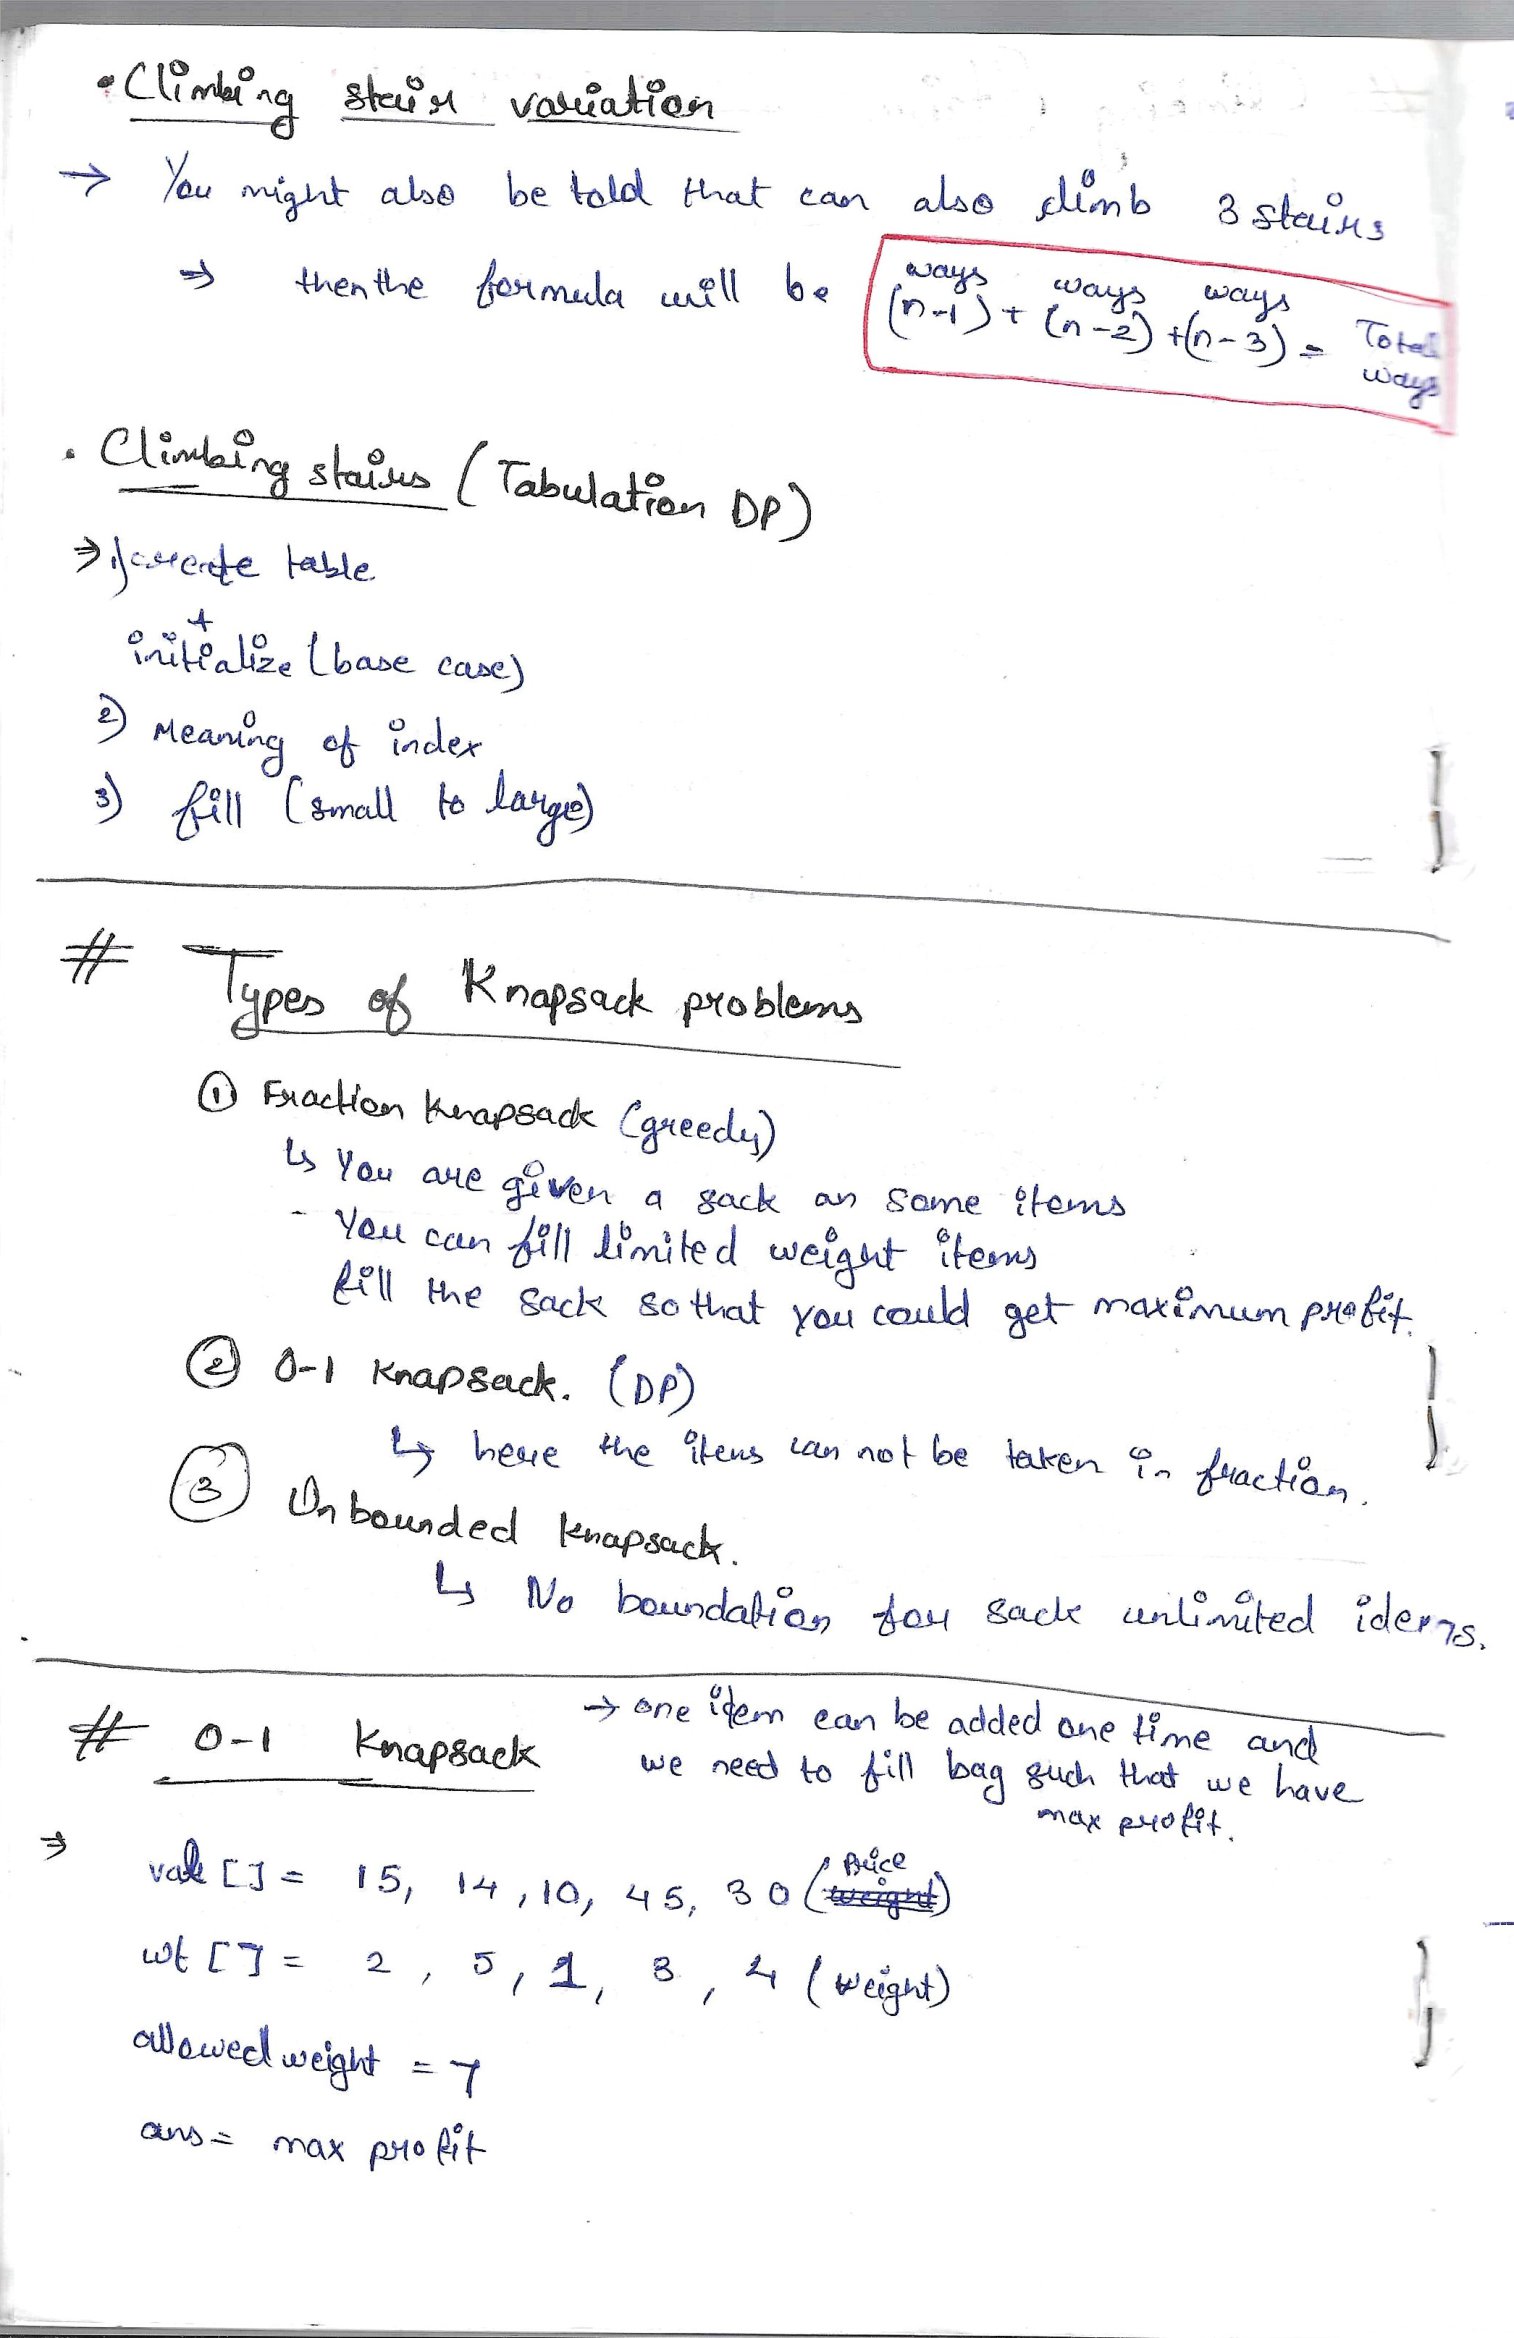 • Climbing stair variation
→ You might also be told that can also climb 3 stairs
⇒ then the formula will be ways (n-1) + ways (n-2) + ways (n-3) = Total ways
• Climbing stairs (Tabulation DP)
⇒ 1) create table
+
initialize (base case)
2) Meaning of index
3) fill (small to large)
# Types of Knapsack problems
① Fraction Knapsack (greedy)
↳ You are given a sack an some items
- You can fill limited weight items
fill the sack so that you could get maximum profit.
② 0-1 Knapsack. (DP)
↳ here the itens can not be taken in fraction.
③ Unbounded Knapsack.
↳ No boundation for sack unlimited idems.
# 0-1 Knapsack → one item can be added one time and
we need to fill bag such that we have
max profit.
⇒ val [] = 15, 14, 10, 45, 30 (Price weight)
wt [] = 2, 5, 1, 3, 4 (weight)
allowed weight = 7
ans = max profit